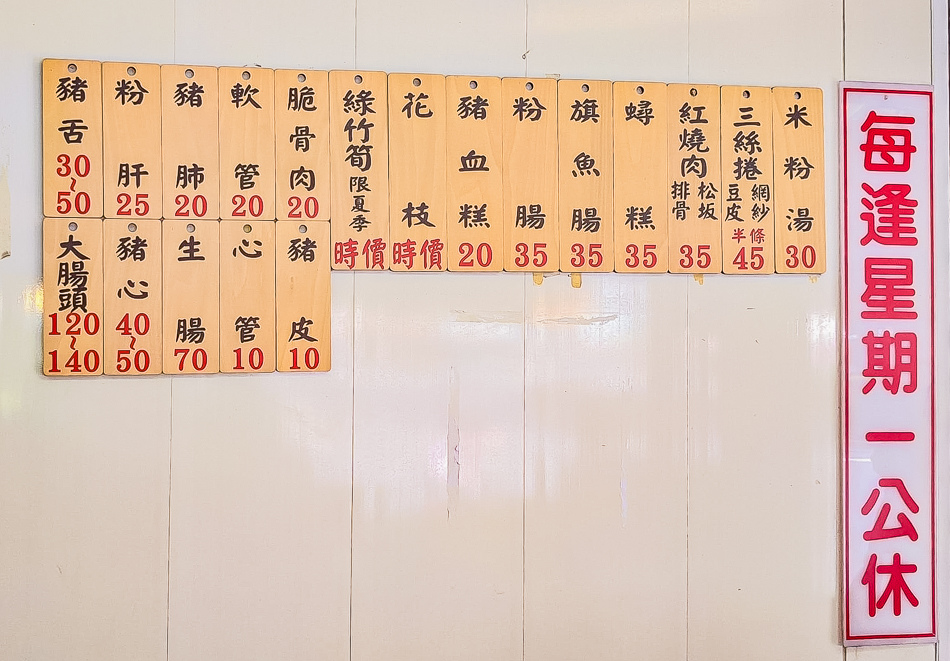 米粉湯 30
三絲捲 網紗 豆皮 半條 45
紅燒肉 松坂 排骨 35
蟳糕 35
旗魚腸 35
粉腸 35
豬血糕 20
花枝 時價
綠竹筍 限夏季 時價
脆骨肉 20
軟管 20
豬肺 20
粉肝 25
豬舌 30~50
豬皮 10
心管 10
生腸 70
豬心 40~50
大腸頭 120~140
每逢星期一公休